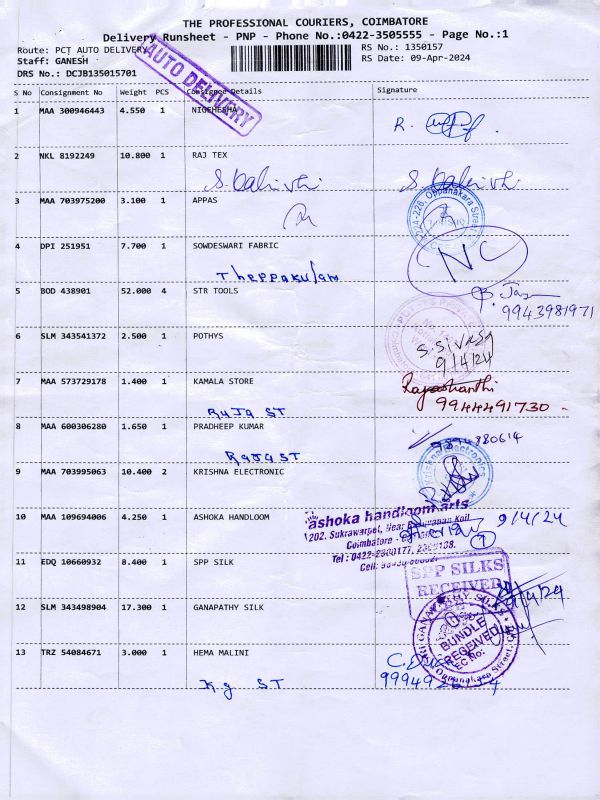 THE PROFESSIONAL COURIERS, COIMBATORE
Delivery Runsheet - PNP - Phone No.:0422-3505555 - Page No.:1
Route: PCT AUTO DELIVERY
RS No.: 1350157
Staff: GANESH
RS Date: 09-Apr-2024
DRS No.: DCJB135015701
AUTO DELIVERY
S No Consignment No Weight PCS Consignee Details Signature
1 MAA 300946443 4.550 1
R.
2 NKL 8192249 10.800 1 RAJ TEX
3 MAA 703975200 3.100 1 APPAS
224-228, Oppanakara Street
4 DPI 251951 7.700 1 SOWDESWARI FABRIC
NC
Theppakulam
5 BOD 438901 52.000 4 STR TOOLS
9943981971
6 SLM 343541372 2.500 1 POTHYS
S. SIVASA
9/4/24
7 MAA 573729178 1.400 1 KAMALA STORE
Rajashanthi
9944491730
RaJa ST
8 MAA 600306280 1.650 1 PRADHEEP KUMAR
880614
RaJa ST
9 MAA 703995063 10.400 2 KRISHNA ELECTRONIC
Krishna Electronics
10 MAA 109694006 4.250 1 ASHOKA HANDLOOM
ashoka handloom arts
9/4/24
202. Sukrawarpet, Near
Coimbatore
Tel : 0422-2300177,
Cell:
11 EDQ 10660932 8.400 1 SPP SILK
SPP SILKS
RECEIVED
9/4/24
12 SLM 343498904 17.300 1 GANAPATHY SILK
SRI GANAPATHY SILKS
BUNDLE
RECEIVED
REC No:
Oppanakara Street,
13 TRZ 54084671 3.000 1 HEMA MALINI
Kg ST